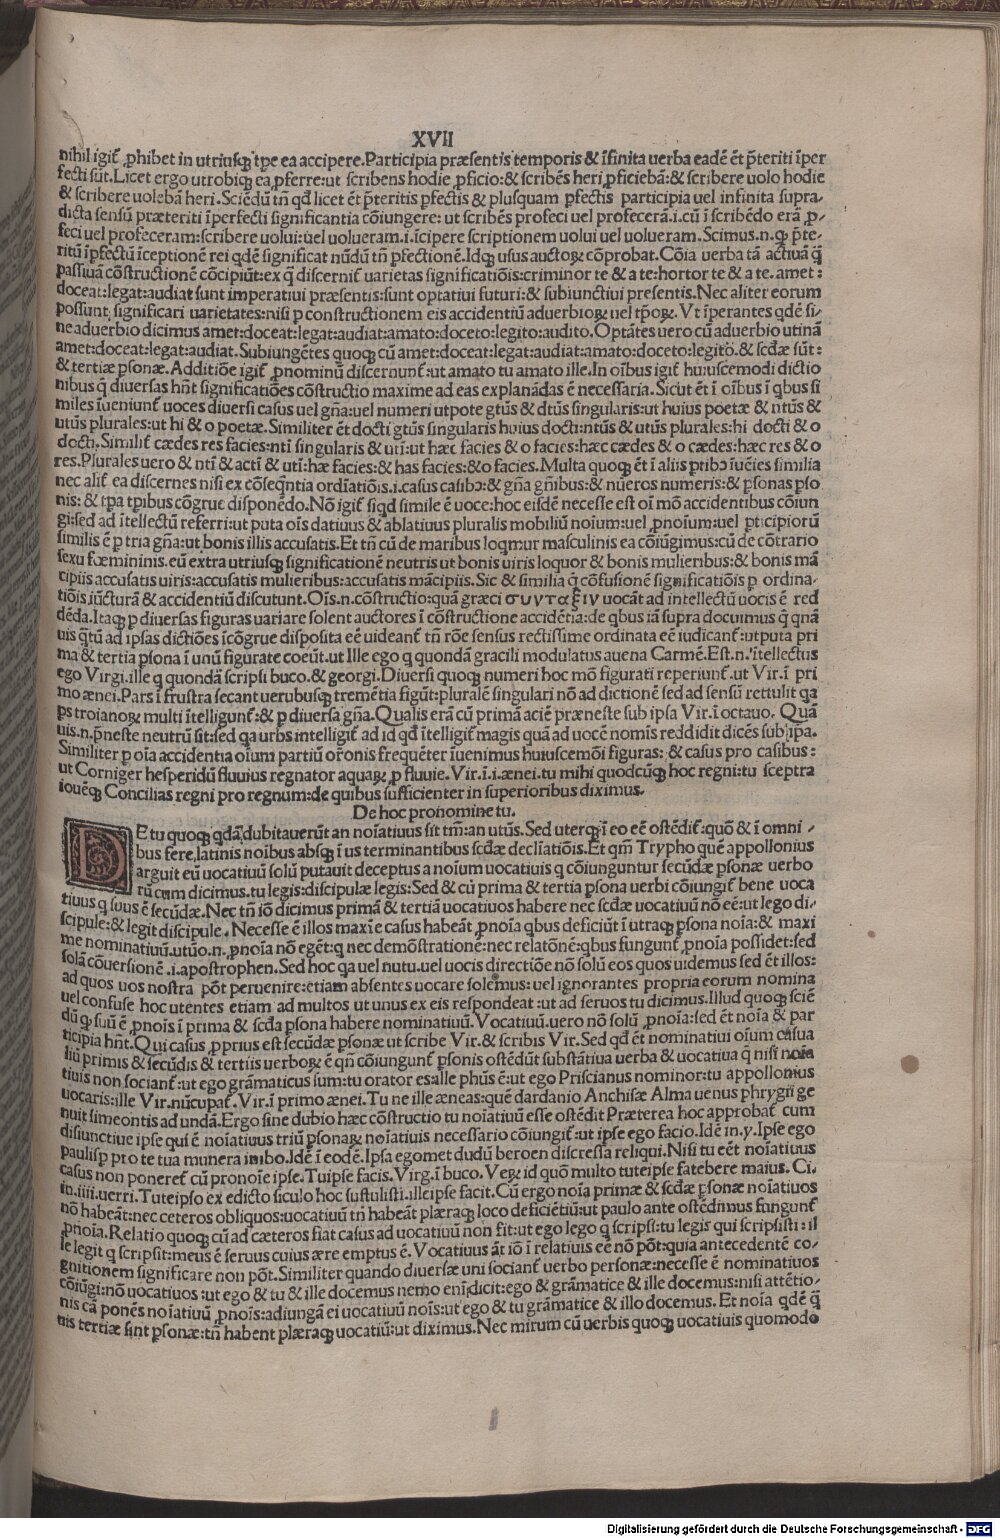 XVII
nihil igit̃ ꝓhibet in utriusqꝫ tp̃e ea accipere.Participia præsentis temporis & ĩfinita uerba eadẽ ẽt p̃teriti ĩper
fecti sũt.Licet ergo utrobiqꝫ ea ꝓferre:ut scribens hodie ꝓficio:& scribẽs heri ꝓficiebã:& scribere uolo hodie
& scribere uolebã heri.Sciẽdũ tñ qd licet ẽt p̃teritis pfectis & plusquam pfectis participia uel infinita supra/
dicta sensũ præteriti ĩperfecti significantia cõiungere: ut scribẽs profeci uel profecerã.i.cũ ĩ scribẽdo erã ꝓ/
feci uel profeceram:scribere uolui:uel uolueram.i.ĩcipere scriptionem uolui uel uolueram.Scimus.n.qꝫ p̃te/
ritũ ĩpfectũ ĩceptionẽ rei qdẽ significat nũdũ tñ pfectionẽ.Idqꝫ usus auctoꝝ cõprobat.Cõia uerba tã actiuã q̃
passiuã cõstructionẽ cõcipiũt:ex q̃ discernit̃ uarietas significatiõis:criminor te & a te:hortor te & a te.amet:
doceat:legat:audiat sunt imperatiui præsentis:sunt optatiui futuri:& subiunctiui presentis.Nec aliter eorum
possunt significari uarietates:nisi p constructionem eis accidentiũ aduerbioꝝ uel tp̃oꝝ.Vt ĩperantes qdẽ si/
ne aduerbio dicimus amet:doceat:legat:audiat:amato:doceto:legito:audito.Optãtes uero cũ aduerbio utinã
amet:doceat:legat:audiat.Subiungẽtes quoqꝫ cũ amet:doceat:legat:audiat:amato:doceto:legito.& scdæ sũt:
& tertiæ psonæ.Additiõe igit̃ ꝓnominũ discernunt̃:ut amato tu amato ille.In oĩbus igit̃ huiuscemodi dictio
nibus q̃ diuersas hñt significatiões cõstructio maxime ad eas explanãdas ẽ necessaria.Sicut ẽt ĩ oĩbus ĩ qbus si
miles iueniunt̃ uoces diuersi casus uel gña:uel numeri utpote gtũs & dtũs singularis:ut huius poetæ & ntũs &
utũs plurales:ut hi & o poetæ.Similiter ẽt docti gtũs singularis huius docti:ntũs & utũs plurales:hi docti & o
docti.Similit̃ cædes res facies:ntĩ singularis & utĩ:ut hæc facies & o facies:hæc cædes & o cædes:hæc res & o
res.Plurales uero & ntĩ & actĩ & utĩ:hæ facies:& has facies:&o facies.Multa quoqꝫ ẽt ĩ aliis ptibꝫ iuẽies similia
nec alit̃ ea discernes nisi ex cõseq̃ntia ordĩatiõis.i.casus casibꝫ:& gña gñibus:& nũeros numeris:& psonas pso
nis:& tp̃a tp̃ibus cõgrue disponẽdo.Nõ igit̃ siqd simile ẽ uoce:hoc eisdẽ necesse est oĩ mõ accidentibus cõiun
gi:sed ad ĩtellectũ referri:ut puta oĩs datiuus & ablatiuus pluralis mobiliũ noĩum:uel ꝓnoĩum:uel pticipiorũ
similis ẽ p tria gña:ut bonis illis accusatis.Et tñ cũ de maribus loqmur masculinis ea cõiũgimus:cũ de cõtrario
sexu fœmininis.eũ extra utriusqꝫ significationẽ neutris ut bonis uiris loquor & bonis mulieribus:& bonis mã
cipiis accusatis uiris:accusatis mulieribus:accusatis mãcipiis.Sic & similia q̃ cõfusionẽ significatiõis p ordina/
tiõis iũcturã & accidentiũ discutunt.Oĩs.n.cõstructio:quã græci συνταξιν uocãt ad intellectũ uocis ẽ red
dẽda.Itaqꝫ p diuersas figuras uariare solent auctores ĩ cõstructione accidẽtia:de qbus iã supra docuimus q qnã
uis q̃tũ ad ipsas dictiões icõgrue disposita eẽ uideant̃ tñ rõe sensus rectissime ordinata eẽ iudicant̃:utputa pri
ma & tertia psona ĩ unũ figurate coeũt.ut Ille ego q quondã gracili modulatus auena Carmẽ.Est.n.ĩtellectus
ego Virgi.ille q quondã scripsi buco.& georgi.Diuersi quoqꝫ numeri hoc mõ figurati reperiunt̃.ut Vir.ĩ pri
mo ænei.Pars ĩ frustra secant uerubusqꝫ tremẽtia figũt:pluralẽ singulari nõ ad dictionẽ sed ad sensũ rettulit qa
ps troianoꝝ multi ĩtelligunt̃:& p diuersa gña.Qualis erã cũ primã aciẽ præneste sub ipsa Vir.ĩ octauo. Quã
uis.n.p̃neste neutrũ sit:sed qa urbs intelligit̃ ad id qd̃ ĩtelligit̃ magis quã ad uocẽ nomĩs reddidit dicẽs sub ipa.
Similiter p oĩa accidentia oĩum partiũ orõnis frequẽter ĩuenimus huiuscemõi figuras: & casus pro casibus:
ut Corniger hesperidũ fluuius regnator aquaꝝ p fluuie.Vir.ĩ.i.ænei.tu mihi quodcũqꝫ hoc regni:tu sceptra
iouẽqꝫ Concilias regni pro regnum:de quibus sufficienter in superioribus diximus.
De hoc pronomine tu.
DE tu quoqꝫ qdã dubitauerũt an noĩatiuus sit tm̃:an utũs.Sed uterqꝫ ĩ eo eẽ ostẽdit̃:quõ & ĩ omni /
bus fere latinis noĩbus absqꝫ ĩ us terminantibus scdæ declĩatiõis.Et qm̃ Trypho quẽ appollonius
arguit eũ uocatiuũ solũ putauit deceptus a noĩum uocatiuis q cõiunguntur secũdæ psonæ uerbo
rũ cum dicimus.tu legis:discipulæ legis:Sed & cũ prima & tertia psona uerbi cõiungit̃ bene uoca
tiuus q suus ẽ secũdæ.Nec tñ iõ dicimus primã & tertiã uocatiuos habere nec scdæ uocatiuũ nõ eẽ:ut lego di/
scipule:& legit discipule.Necesse ẽ illos maxĩe casus habeãt ꝓnoĩa qbus deficiũt ĩ utraqꝫ psona noĩa:& maxi
me nominatiuũ.utũo.n.ꝓnoĩa nõ egẽt:q nec demõstrationẽ:nec relatõnẽ:qbus fungunt̃ ꝓnoĩa possidet:sed
solã cõuersionẽ.i.apostrophen.Sed hoc qa uel nutu.uel uocis directiõe nõ solũ eos quos uidemus sed ẽt illos:
ad quos uos nostra põt peruenire:etiam absentes uocare solemus:uel ignorantes propria eorum nomina
uel confuse hoc utentes etiam ad multos ut unus ex eis respondeat:ut ad seruos tu dicimus.Illud quoqꝫ sciẽ
dũ qꝫ suũ ẽ ꝓnoĩs ĩ prima & scda psona habere nominatiuũ.Vocatiuũ.uero nõ solũ ꝓnoĩa:sed ẽt noĩa & par
ticipia hñt.Qui casus ꝓprius est secũdæ psonæ ut scribe Vir.& scribis Vir.Sed qd̃ ẽt nominatiui oĩum casua
liũ primis & secũdis & tertiis uerboꝝ ẽ qñ cõiungunt̃ psonis ostẽdũt substãtiua uerba & uocatiua q̃ nisi noĩa
tiuis non sociant̃:ut ego grãmaticus sum:tu orator es:alle phũs ẽ:ut ego Priscianus nominor:tu appollonius
uocaris:ille Vir.nũcupat̃.Vir.ĩ primo ænei.Tu ne ille æneas:quẽ dardanio Anchisæ Alma uenus phrygii ge
nuit simeontis ad undã.Ergo sine dubio hæc cõstructio tu noĩatiuũ esse ostẽdit Præterea hoc approbat̃ cum
disiunctiue ipse qui ẽ noĩatiuus triũ psonaꝝ noĩatiuis necessario cõiungit̃:ut ipse ego facio.Idẽ in.y.Ipse ego
paulisp pro te tua munera inibo.Idẽ ĩ eodẽ.Ipsa egomet dudũ beroen discressa reliqui.Nisi tu eẽt noĩatiuus
casus non poneret̃ cũ pronoĩe ipse.Tuipse facis.Virg.ĩ buco.Veꝝ id quod multo tuteipse fatebere maius.Ci.
in.iiii.uerri.Tuteipso ex edicto siculo hoc sustulisti.illeipse facit.Cũ ergo noĩa primæ & scdæ psonæ noĩatiuos
nõ habeãt:nec ceteros obliquos:uocatiuũ tñ habeãt plæraqꝫ loco deficiẽtiũ:ut paulo ante ostẽdimus fungunt̃
ꝓnoĩa.Relatio quoqꝫ cũ ad cæteros fiat casus ad uocatiuũ non fit:ut ego lego q scripsi:tu legis qui scripsisti:il
le legit q scripsit:meus ẽ seruus cuius ære emptus ẽ.Vocatiuus ãt iõ ĩ relatiuis eẽ nõ põt:quia antecedentẽ co/
gnitionem significare non põt.Similiter quando diuersæ uni sociant̃ uerbo personæ:necesse ẽ nominatiuos
cõiũgi:nõ uocatiuos:ut ego & tu & ille docemus nemo enĩ dicit:ego & grãmatice & ille docemus:nisi attẽtio/
nis cã ponẽs noĩatiuũ ꝓnoĩs:adiungã ei uocatiuũ noĩs:ut ego & tu grãmatice & illo docemus.Et noĩa qdẽ q̃
uis tertiæ sint psonæ:tñ habent plæraqꝫ uocatiũ:ut diximus.Nec mirum cũ uerbis quoqꝫ uocatiuis quomodo
Digitalisierung gefördert durch die Deutsche Forschungsgemeinschaft - DFG